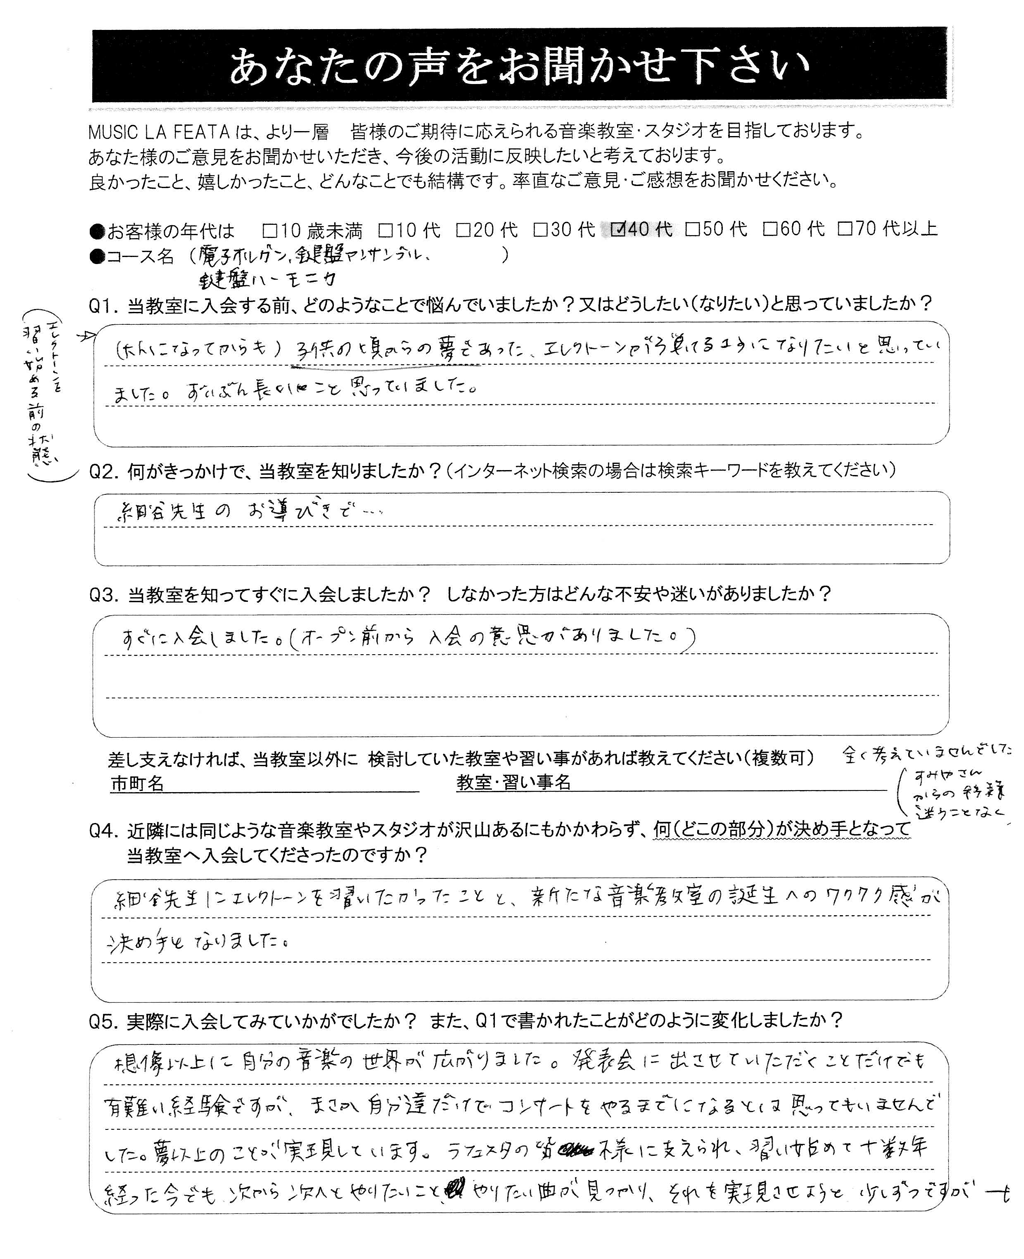 あなたの声をお聞かせ下さい
MUSIC LA FEATAは、より一層　皆様のご期待に応えられる音楽教室・スタジオを目指しております。
あなた様のご意見をお聞かせいただき、今後の活動に反映したいと考えております。
良かったこと、嬉しかったこと、どんなことでも結構です。率直なご意見・ご感想をお聞かせください。
●お客様の年代は　□10歳未満 □10代 □20代 □30代 ☑40代 □50代 □60代 □70代以上
●コース名（電子オルガン、鍵盤アンサンブル、　　　）
鍵盤ハーモニカ
Q1. 当教室に入会する前、どのようなことで悩んでいましたか？又はどうしたい（なりたい）と思っていましたか？
エレクトーンを
習い始める前の状態
（大人になってからも）子供の頃からの夢であった、エレクトーンが弾けるようになりたいと思ってい
ました。ずいぶん長いこと思っていました。
Q2. 何がきっかけで、当教室を知りましたか？（インターネット検索の場合は検索キーワードを教えてください）
細谷先生のお導びきで…
Q3. 当教室を知ってすぐに入会しましたか？　しなかった方はどんな不安や迷いがありましたか？
すぐに入会しました。（オープン前から入会の意思がありました。）
差し支えなければ、当教室以外に 検討していた教室や習い事があれば教えてください（複数可）
全く考えていませんでした
市町名　　　教室・習い事名
すみやさん
からの移籍
迷うことなく
Q4. 近隣には同じような音楽教室やスタジオが沢山あるにもかかわらず、何（どこの部分）が決め手となって
当教室へ入会してくださったのですか？
細谷先生にエレクトーンを習いたかったことと、新たな音楽教室の誕生へのワクワク感が
決め手となりました。
Q5. 実際に入会してみていかがでしたか？ また、Q1で書かれたことがどのように変化しましたか？
想像以上に自分の音楽の世界が広がりました。発表会に出させていただくことだけでも
有難い経験ですが、まさか自分達だけでコンサートをやるまでになるとは思ってもいませんで
した。夢以上のことが実現しています。ラフェスタの皆様に支えられ、習い始めて十数年
経った今でも次から次へとやりたいこと、やりたい曲が見つかり、それを実現させようと少しずつですが